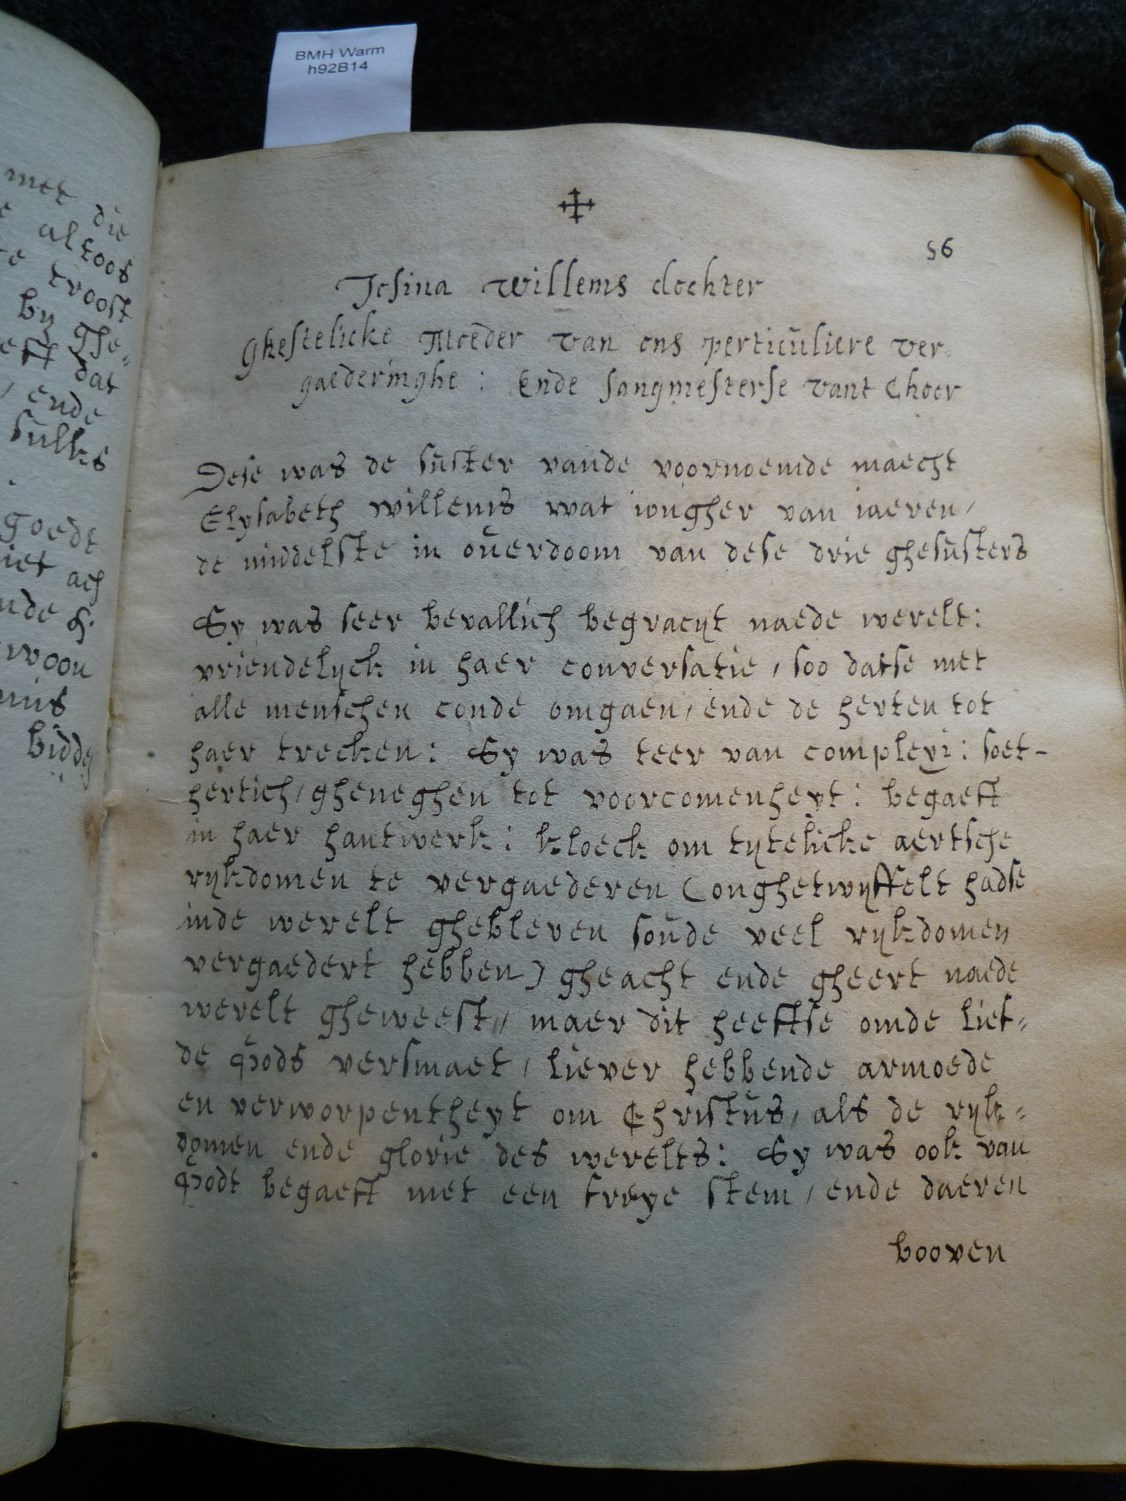 BMH Warm
h92B14
met die
altoos
troost
by ghe-
dat
/ ende
sulks
goedt
niet ach
woon
bidde
56
Josina Willems dochter
Ghestelicke Moeder van ons perticuliere ver-
gaederinghe: Ende sangmesterse vant Choor
Dese was de suster vande voornoemde maecht
Elysabeth willems wat iongher van iaeren/
de middelste in ouerdoom van dese drie ghesusters
Sy was seer bevallich begracyt naede werelt:
vriendelyck in haer conversatie / soo datse met
alle menschen conde omgaen / ende de herten tot
haer trecken: Sy was teer van complexi: soet-
hertich / gheneghen tot voorcomenheyt: begaeft
in haer hantwerk: kloeck om tytelicke aertsche
rykdomen te vergaederen (onghetwyffelt hadse
inde werelt ghebleven soude veel rykdomen
vergaedert hebben) gheacht ende gheert naede
werelt gheweest // maer dit heeftse omde lief-
de Gods versmaet / liever hebbende armoede
en verworpentheyt om Christus / als de ryk-
domen ende glorie des werelts: Sy was ook van
Godt begaeft met een freye stem / ende daeren
booven